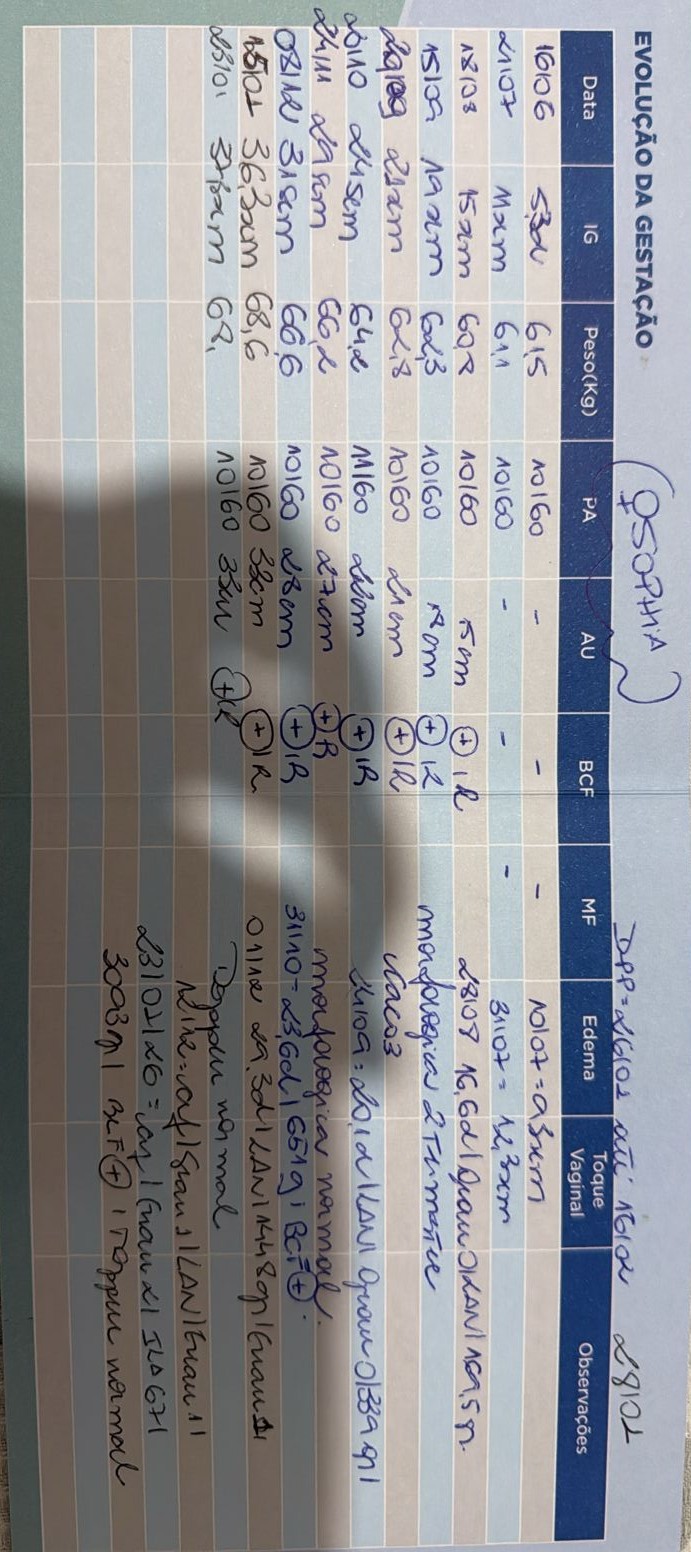 EVOLUÇÃO DA GESTAÇÃO
SOPHIA
DPP = 26/01 até 16/02
28/01
Data IG Peso(Kg) PA AU BCF MF Edema Toque Vaginal Observações
16/06 61,5 10/60 - - - 10/07 = 9,3sem
21/07 11sem 61,1 10/60 - - - 31/07 = 12,3sem
18/08 15sem 60,8 10/60 15cm + R 28/08 16,6d / Grau 0 / LAN / 169,5g.
15/09 19sem 62,3 10/60 18cm + R morfológica 2º Trimestre
29/09 21sem 62,8 10/60 21cm + R
20/10 24sem 64,2 11/60 22cm + R 24/09 = 20,1d / LAN / Grau 0 / 389g /
24/11 29sem 66,2 10/60 27cm + R morfológica normal.
08/12 31sem 66,6 10/60 28cm + R 31/10 - 23,6d / 651g / BCF +.
15/01 36,3sem 68,6 10/60 32cm + R 01/12 29,3d / LAN / 1448g / Grau 1
23/01 37sem 68, 10/60 33cm + R Doppler normal
/ Grau 1 / LAN /
23/01/26 = cef / Grau 2 / ILA 67 /
3093g / BCF + / Doppler normal